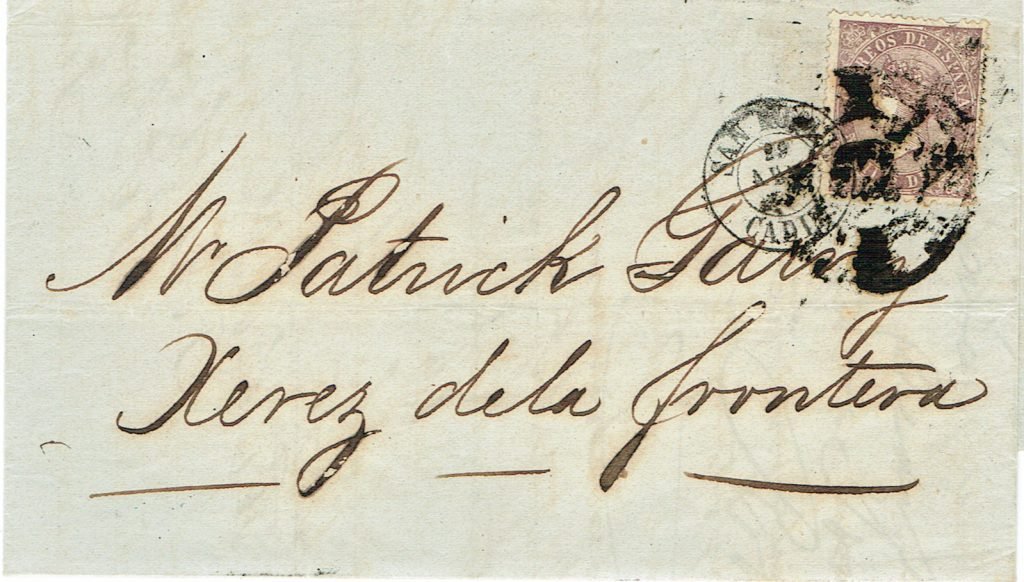 CORREOS DE ESPAÑA
SAN
29
CADIZ
Mr Patrick Garvey
Xerez dela frontera